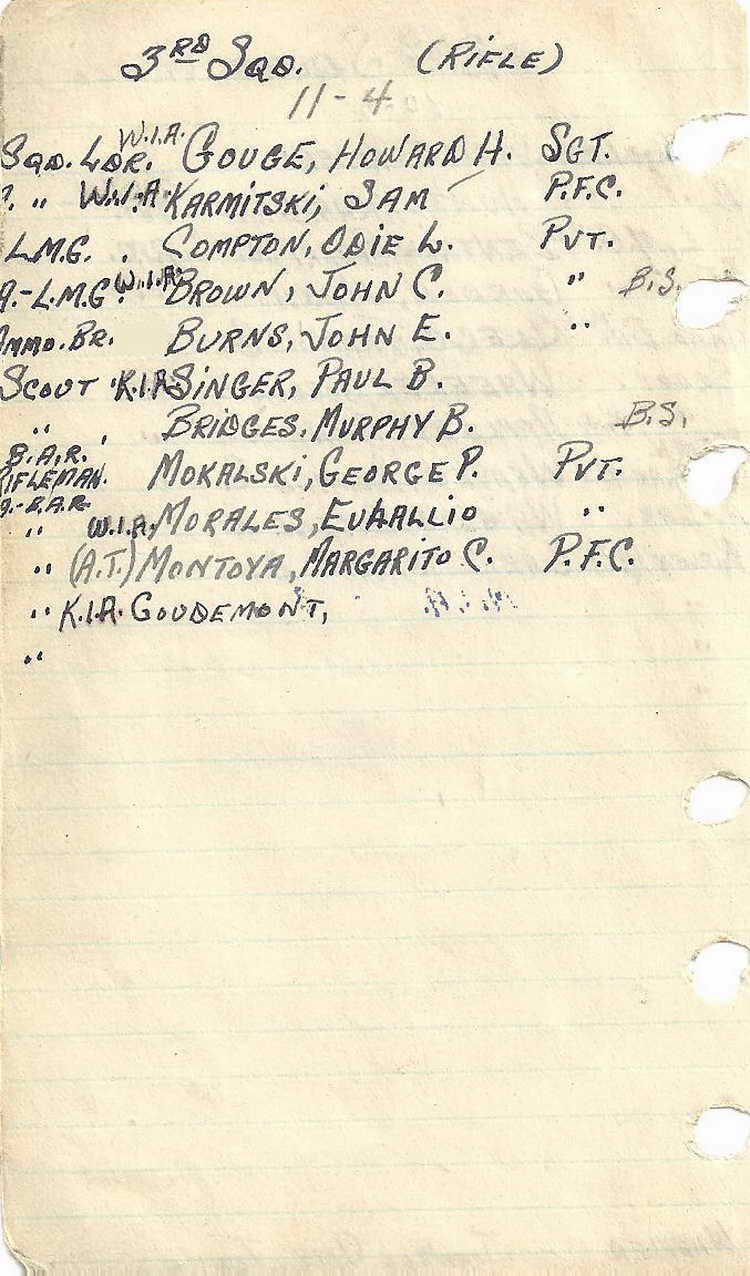 3RD SQD. (RIFLE)
11-4
SQD. LDR. W.I.A. GOUGE, HOWARD H. SGT.
" W.I.A. KARMITSKI, SAM P.F.C.
L.M.G. COMPTON, ODIE L. PVT.
A.-L.M.G. W.I.A. BROWN, JOHN C. " B.S.
AMMO. BR. BURNS, JOHN E. "
SCOUT K.I.A. SINGER, PAUL B.
" BRIDGES, MURPHY B. B.S.
B.A.R.
RIFLEMAN. MOKALSKI, GEORGE P. PVT.
A.-B.A.R.
" W.I.A. MORALES, "
" (A.T.) MONTOYA, MARGARITO C. P.F.C.
" K.I.A. GOUDEMONT,
"